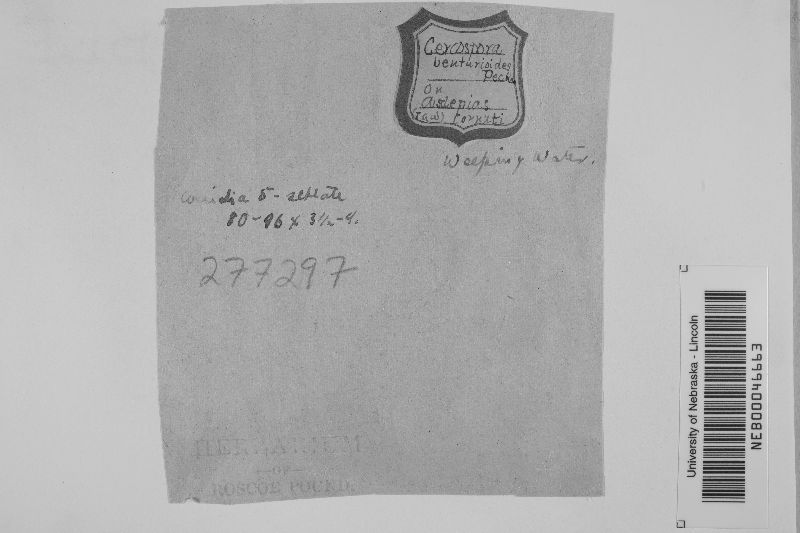 Cercospora
venturioides
Peck
On
Asclepias
Cornuti
Weeping Water.
Conidia 5-septate
80-96 x 3½-4.
277297
HERBARIUM
OF
ROSCOE POUND.
University of Nebraska - Lincoln
NEB00046663